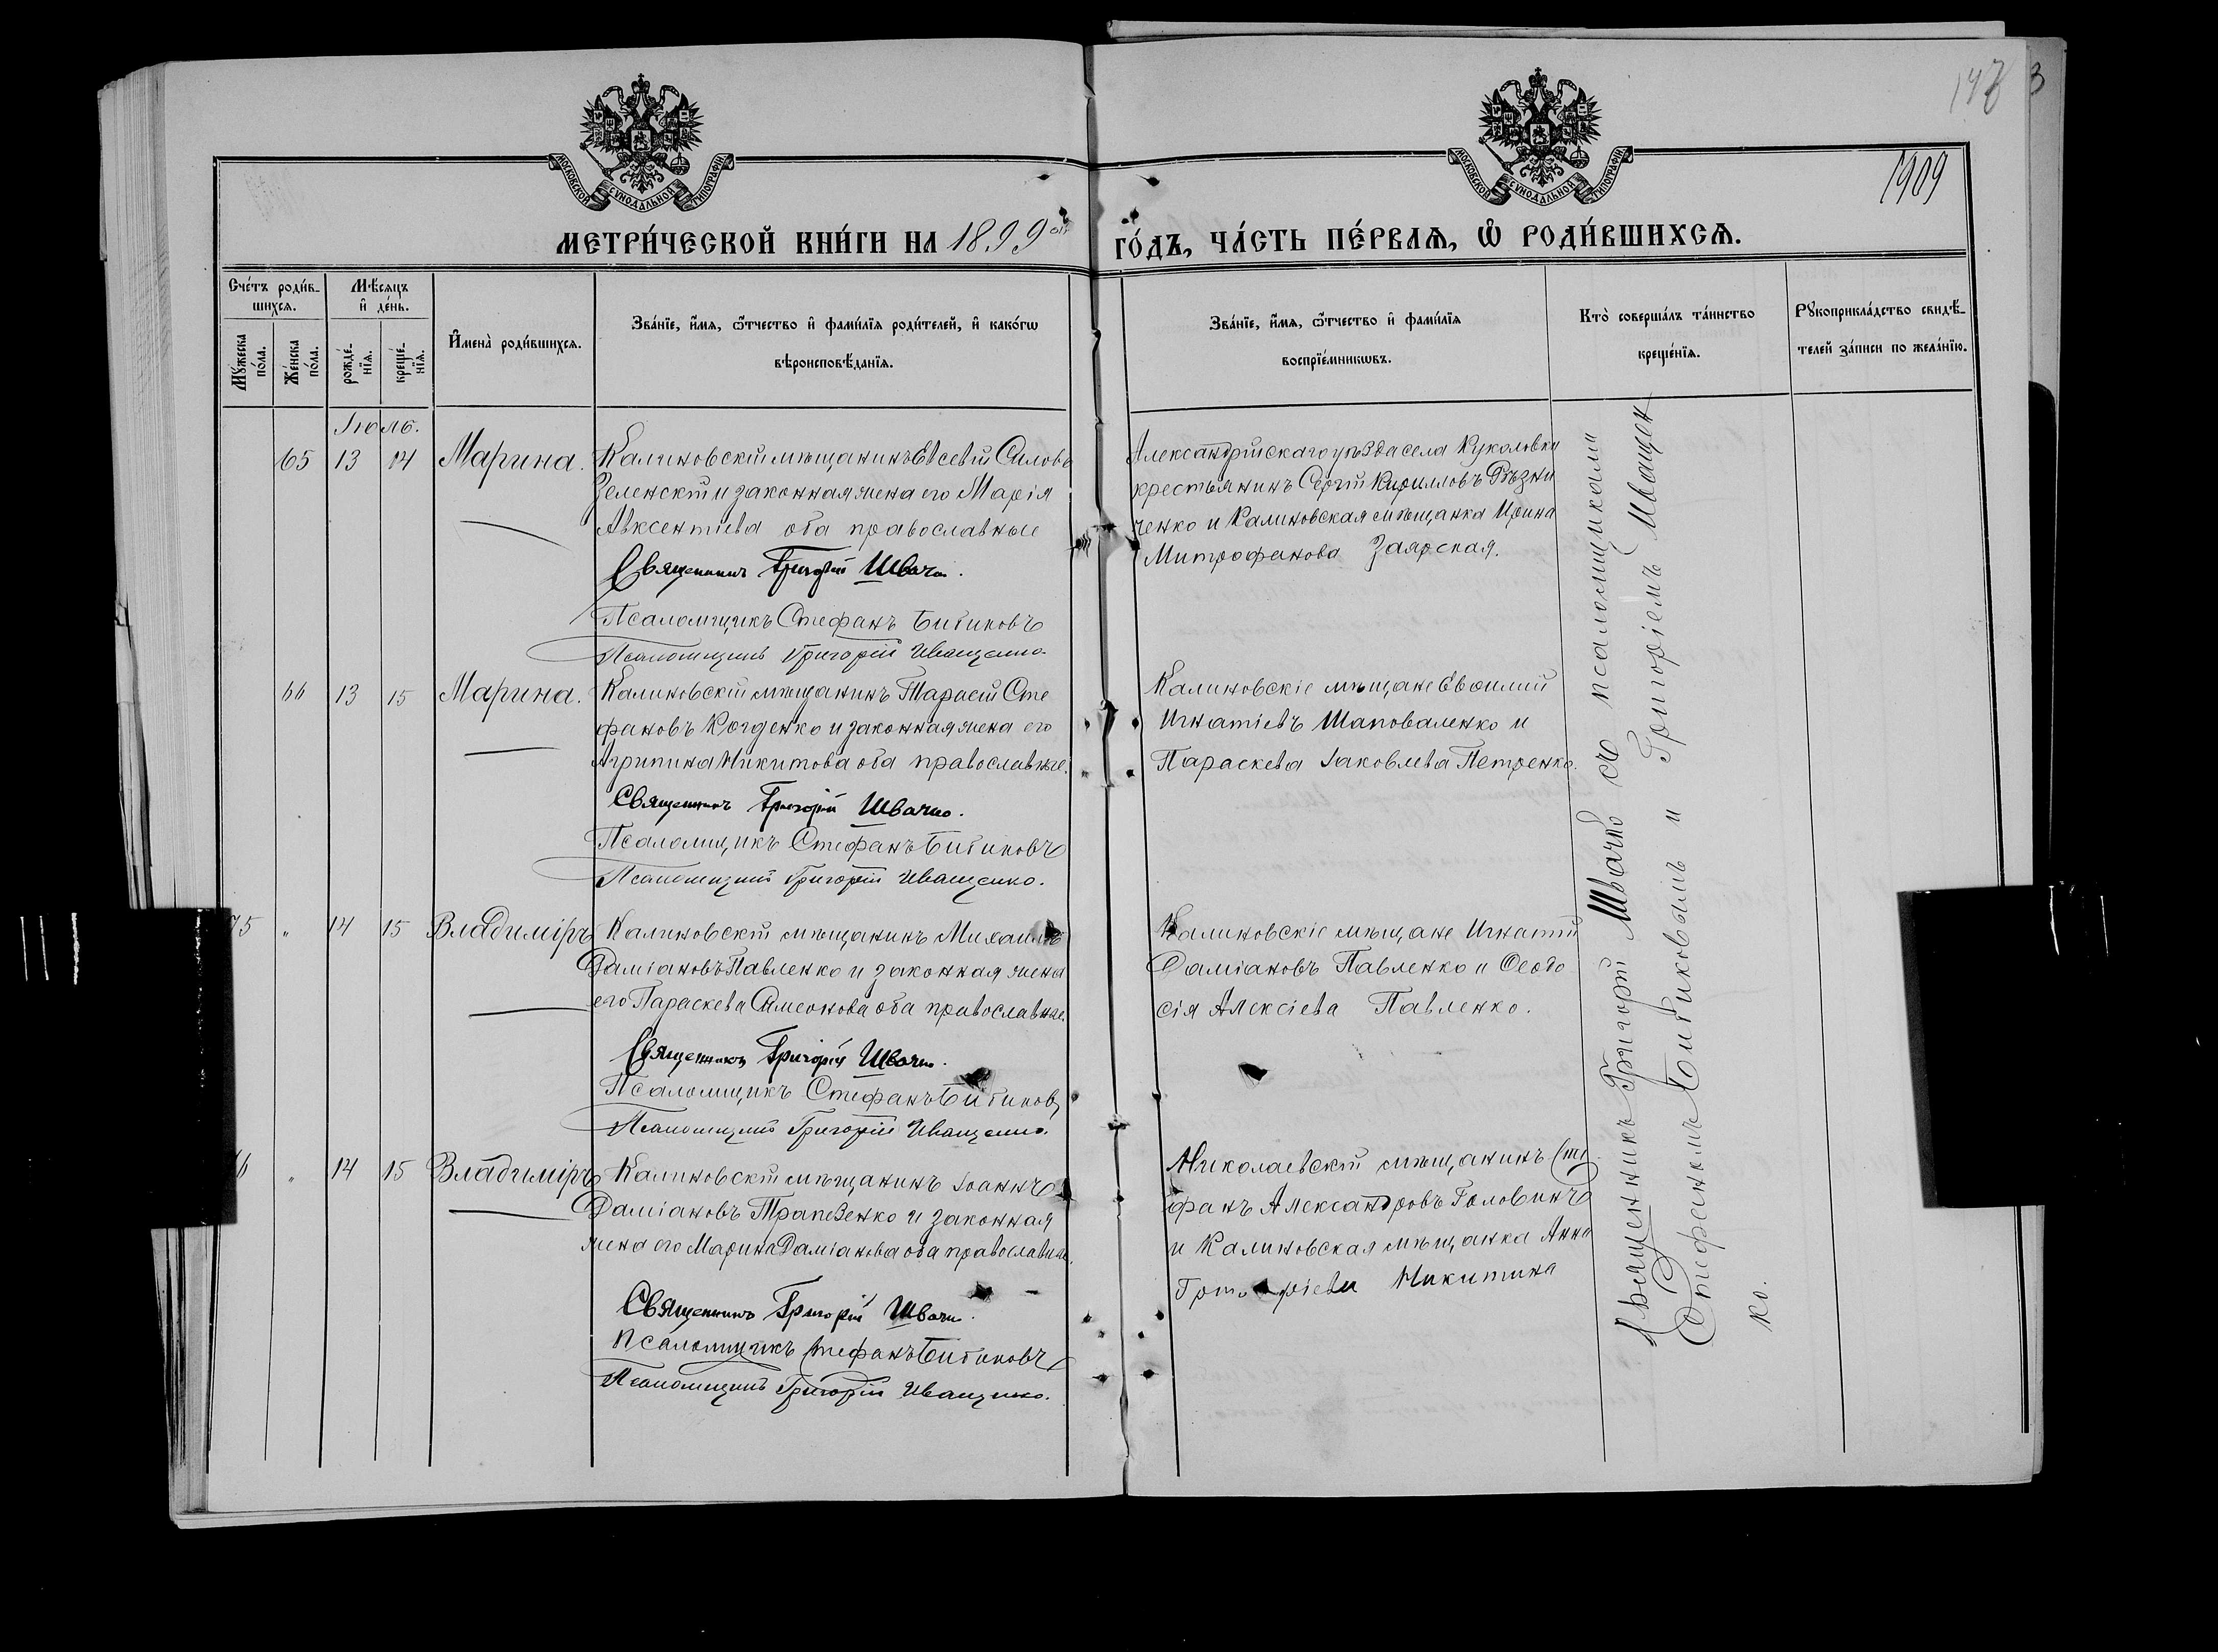 147
3
1909
МОСКОВСКОЙ СѴНОДАЛЬНОЙ ТИПОГРАФІИ
МОСКОВСКОЙ СѴНОДАЛЬНОЙ ТИПОГРАФІИ
МЕТРИ́ЧЕСКОЙ КНИ́ГИ НА 1899 ГО́ДЪ, ЧА́СТЬ ПЕ́РВАѦ, Ѡ҆ РОДИ́ВШИХСѦ.
Сче́тъ роди́в-
шихсѧ.
Мꙋ́жеска
по́ла.
Же́нска
по́ла.
Мѣ́сѧцъ
и҆ де́нь.
рожде́-
нїѧ.
креще́-
нїѧ.
И҆мена̀ роди́вшихсѧ.
Зва́нїе, и҆́мѧ, ѻ҆́тчество и҆ фами́лїѧ роди́телей, и҆ како́гѡ
вѣроисповѣ́данїѧ.
Зва́нїе, и҆́мѧ, ѻ҆́тчество и҆ фами́лїѧ
воспрїе́мникѡвъ.
Кто̀ соверша́лъ та́инство
креще́нїѧ.
Рꙋкоприкла́дство свидѣ́-
телей за́писи по жела́нїю.
Іюль.
65 13 14 Марина. Калиновскій мѣщанинъ Евсевій Силовъ
Зеленскій и законная жена его Марія
Авксентіева оба православные
Священникъ Григорій Швачко.
Псаломщикъ Стефанъ Битиковъ
Псаломщикъ Григорій Иващенко.
Александрійскаго уѣзда села Куколовки
крестьянинъ Сергій Кирилловъ Рѣзни
ченко и Калиновская мѣщанка Ирина
Митрофанова Заярская.
66 13 15 Марина. Калиновскій мѣщанинъ Тарасій Сте
фановъ и законная жена его
Агрипина Никитова оба православные.
Священникъ Григорій Швачко.
Псаломщикъ Стефанъ Битиковъ
Псаломщикъ Григорій Иващенко.
Калиновскіе мѣщане Евфимій
Игнатіевъ Шаповаленко и
Параскева Іаковлева Петренко.
75 " 14 15 Владиміръ Калиновскій мѣщанинъ Михаилъ
Даміановъ Павленко и законная жена
его Параскева Симеонова оба православные.
Священникъ Григорій Швачко.
Псаломщикъ Стефанъ Битиковъ
Псаломщикъ Григорій Иващенко.
Калиновскіе мѣщане Игнатій
Даміановъ Павленко и Ѳеодо
сія Алексіева Павленко.
6 " 14 15 Владиміръ Калиновскій мѣщанинъ Іоаннъ
Даміановъ Трапезенко и законная
жена его Марина Даміанова оба православные.
Священникъ Григорій Швачко.
Псаломщикъ Стефанъ Битиковъ
Псаломщикъ Григорій Иващенко.
Николаевскій мѣщанинъ Сте
фанъ Александровъ Головинъ
и Калиновская мѣщанка Анна
Григоріева Никитина
Священникъ Григорій Швачко съ псаломщиками
Стефаномъ Битиковымъ и Григоріемъ Иващен
ко.